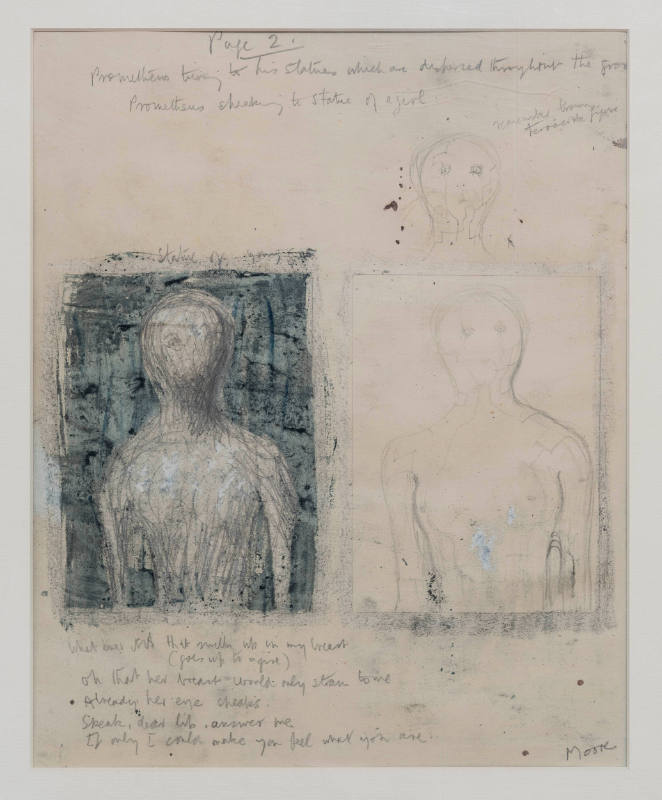 Page 2.
Prometheus to his statues which are dispersed throughout the
Prometheus speaking to statue of a girl
terracotta figure
Statue of young
What that up in my breast
(goes up to a girl)
oh that her breast would only to me
Already her eye speaks.
Speak, dear lip, answer me
If only I could make you feel what you are.
Moore